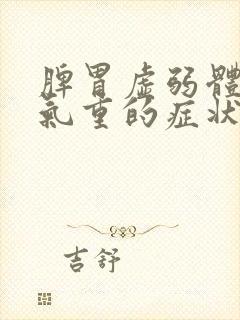 脾胃虛弱體
氣重的症狀
吉舒